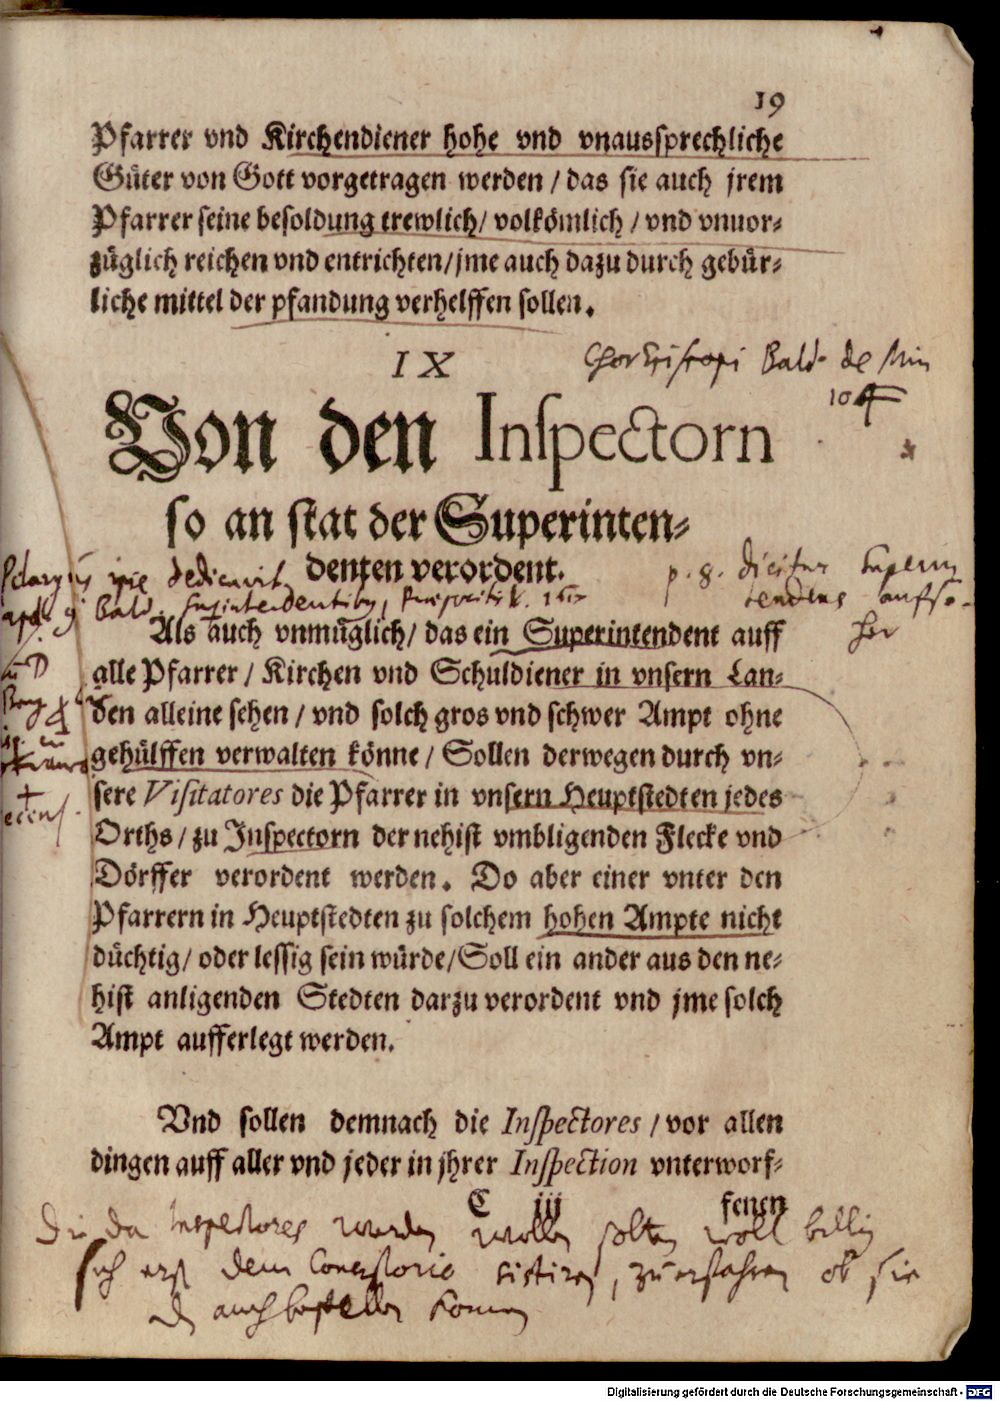 19
Pfarrer vnd Kirchendiener hohe vnd vnaussprechliche
Güter von Gott vorgetragen werden / das sie auch jrem
Pfarrer seine besoldung trewlich / volkömlich / vnd vnuor⸗
züglich reichen vnd entrichten / jme auch dazu durch gebür⸗
liche mittel der pfandung verhelffen sollen.
IX
Von den Inſpectorn
so an stat der Superinten⸗
denten verordent.
Als auch vnmüglich / das ein Superintendent auff
alle Pfarrer / Kirchen vnd Schuldiener in vnsern Lan⸗
den alleine sehen / vnd solch gros vnd schwer Ampt ohne
gehülffen verwalten könne / Sollen derwegen durch vn⸗
sere Viſitatores die Pfarrer in vnsern Heuptstedten jedes
Orths / zu Inspectorn der nehist vmbligenden Flecke vnd
Dörffer verordent werden. Do aber einer vnter den
Pfarrern in Heuptstedten zu solchem hohen Ampte nicht
düchtig / oder lessig sein würde / Soll ein ander aus den ne⸗
hist anligenden Stedten darzu verordent vnd jme solch
Ampt aufferlegt werden.
Vnd sollen demnach die Inſpectores / vor allen
dingen auff aller vnd jeder in jhrer Inſpection vnterworf⸗
C iij
fenen
Bald. de Min
p. 8. dicitur Superin
tendens aufse⸗
her
dedicavit
Bald.
Die da Inspectores werden wollen solten woll billig
sich erst dem Consistorio sistiren, zu erfahren ob sie
auch bestellen konnen